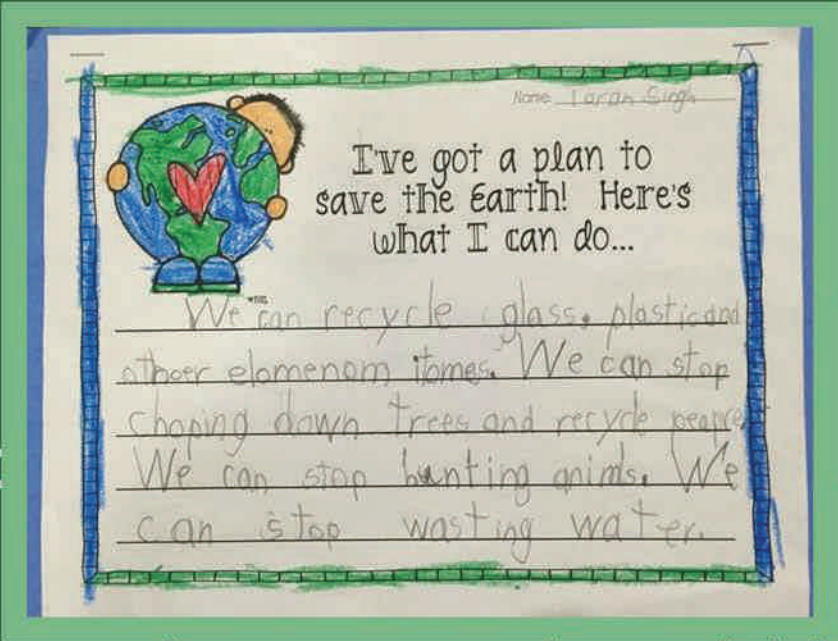 Name Taran Singh
I've got a plan to
save the Earth! Here's
what I can do...
We can recycle glass, plastic and
othoer elomenom itomes. We can stop
choping down trees and recycle
We can stop hunting animls. We
can stop wasting water.